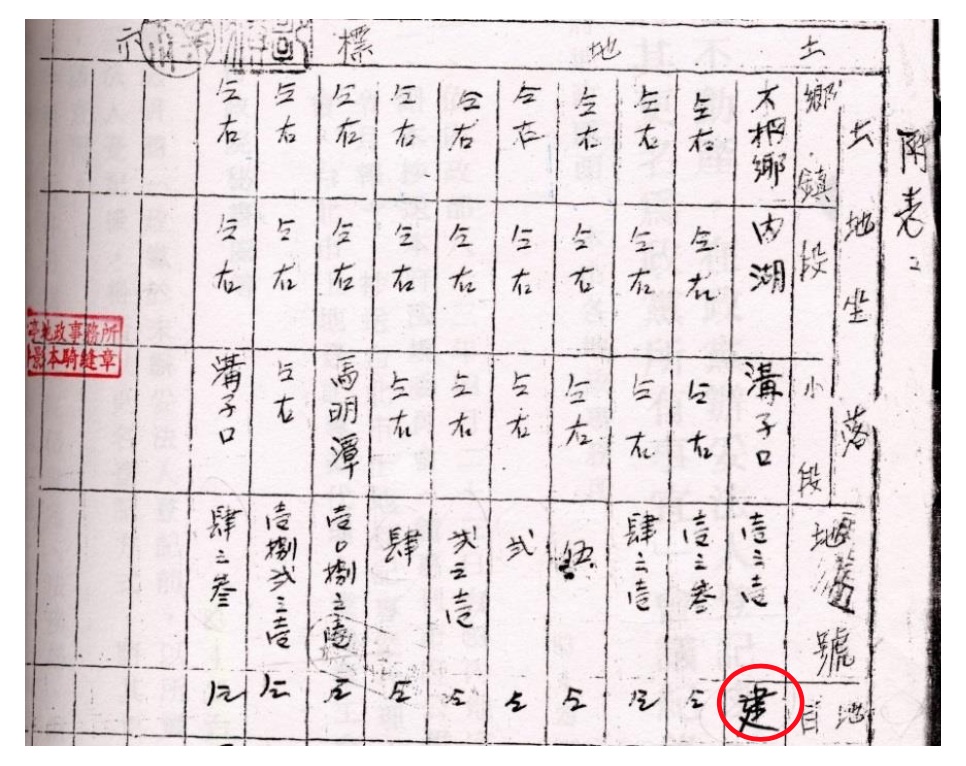 附表2
土地標示
土地坐落
鄉鎮 段 小段 地號 地目
木柵鄉 內湖 溝子口 壹之壹 建
仝右 仝右 仝右 壹之叁 仝
仝右 仝右 仝右 肆之壹 仝
仝右 仝右 仝右 伍 仝
仝右 仝右 仝右 弍 仝
仝右 仝右 仝右 弍之壹 仝
仝右 仝右 仝右 肆 仝
仝右 仝右 馬明潭 壹0捌之壹 仝
仝右 仝右 仝右 壹捌弍之壹 仝
仝右 仝右 溝子口 肆之叁 仝
地政事務所
影本騎縫章